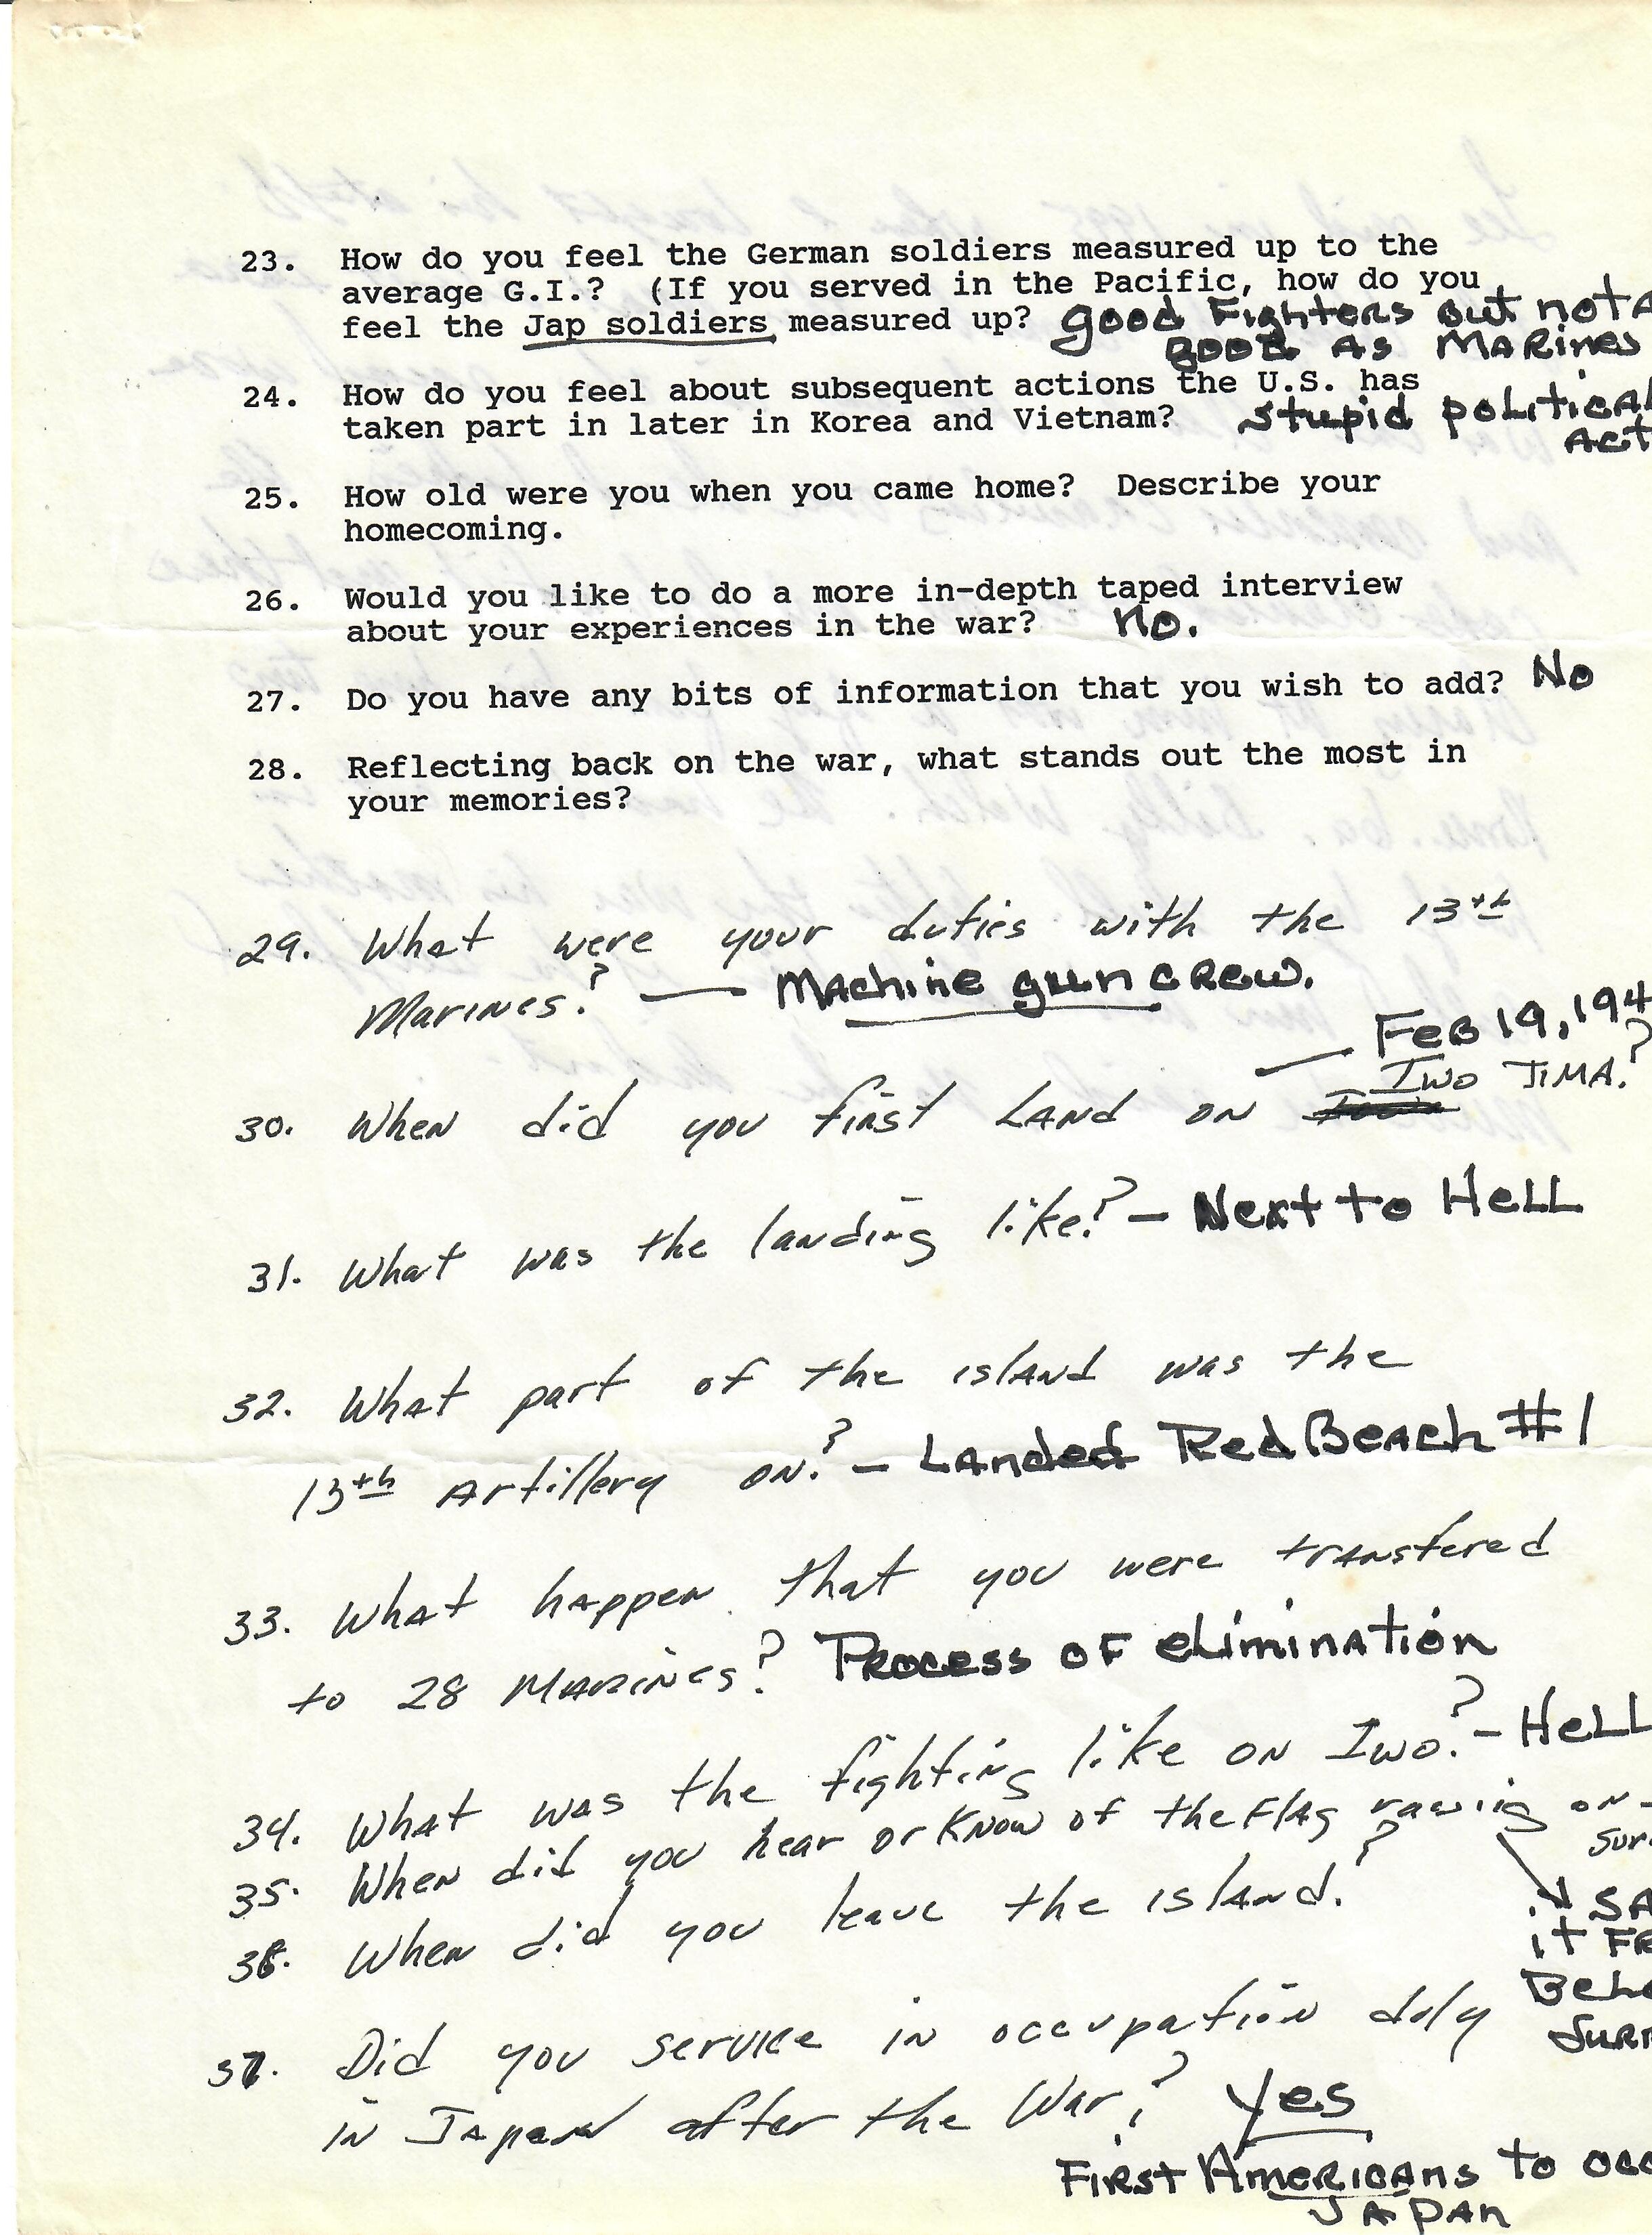 23. How do you feel the German soldiers measured up to the
average G.I.? (If you served in the Pacific, how do you
feel the Jap soldiers measured up? good Fighters but not A
good AS MARines
24. How do you feel about subsequent actions the U.S. has
taken part in later in Korea and Vietnam? stupid politicAL
Act
25. How old were you when you came home? Describe your
homecoming.
26. Would you like to do a more in-depth taped interview
about your experiences in the war? No.
27. Do you have any bits of information that you wish to add? No
28. Reflecting back on the war, what stands out the most in
your memories?
29. What were your duties with the 13th
Marines? — MAchine gun CREW.
— FeB 19, 194
30. When did you first LAND ON Iwo JIMA?
31. What was the landing like? — Next to HeLL
32. What part of the island was the
13th Artillery on? — LAnded Red BeAch #1
33. What happen that you were transfered
to 28 Marines? PRocess OF eLiminAtion
34. What was the fighting like on Iwo? — HeLL
35. When did you hear or know of the Flag on
Sur
36. When did you leave the island?
SA
it FR
BeLo
SuR
37. Did you service in occupation duty
in Japan after the War? Yes
FIRST AmeRICAns to occ
JAPAn